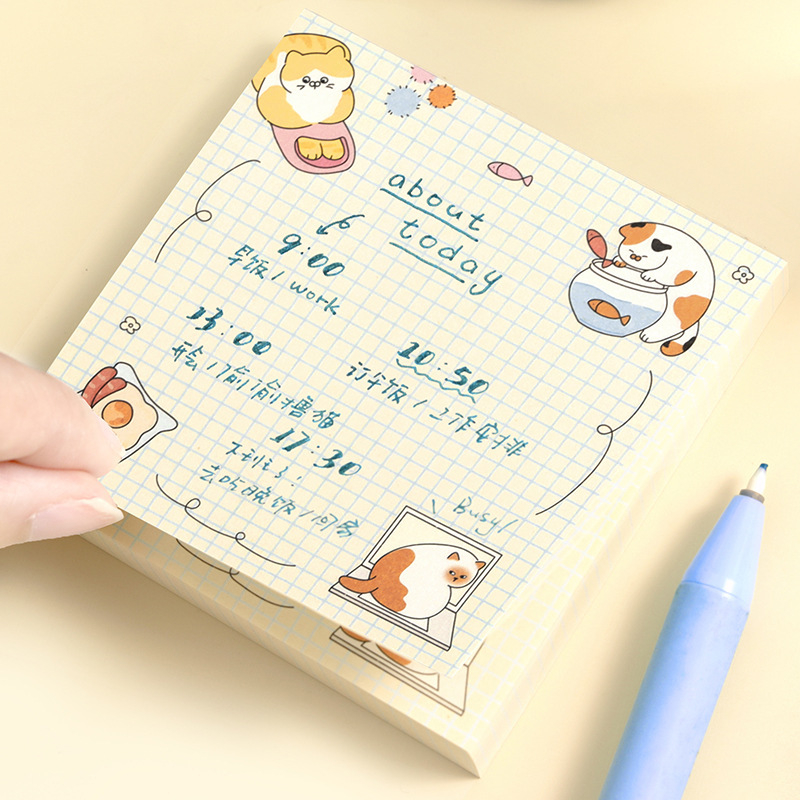 about
today
9:00
早饭 / work
10:50
订午饭 / 工作安排
13:00
开会 / 偷偷撸猫
17:30
下班:
去吃晚饭 /
Busy!